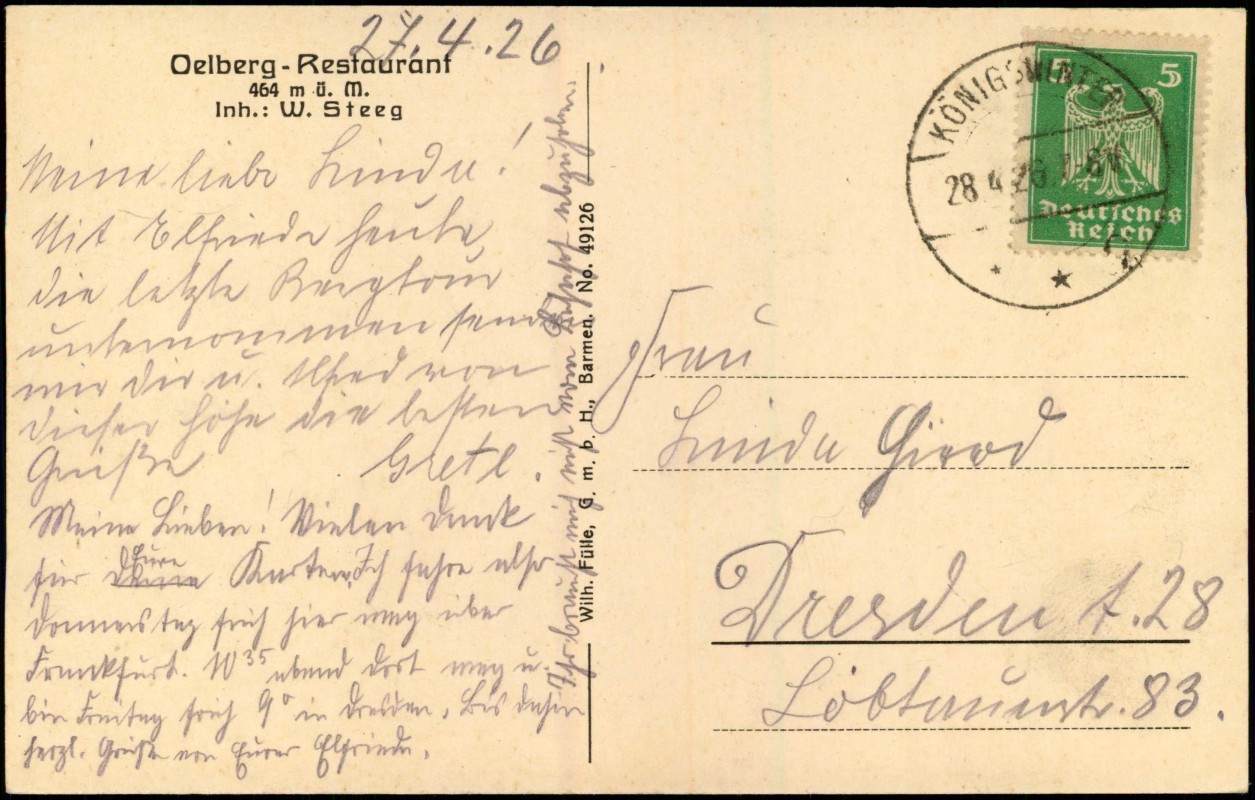 27.4.26
Oelberg-Restaurant
464 m ü. M.
Inh.: W. Steeg
Meine liebe Linda!
Mit Elfriede heute,
die letzte Bergtour
unternommen send
wir dir u. Alfred von
dieser Höhe die besten
Grüße Gretl.
Meine Lieben! Vielen Dank
für Deine Eure Karten, Ich fahre also
Donnerstag früh hier weg über
Frankfurt. 10³⁵ abend dort weg u.
bin Freitag früh 9° in Dresden. Bis dahin
herzl. Grüße von Eurer Elfriede.
Ihr braucht mich nicht vom Bahnhof abzuholen.
Wilh. Fülle, G. m. b. H., Barmen. No. 49126
KÖNIGSWINTER
28.4.26.7-8V
5 5
Deutsches
Reich
Frau
Linda Gierd
Dresden A. 28
Löbtauerstr. 83.